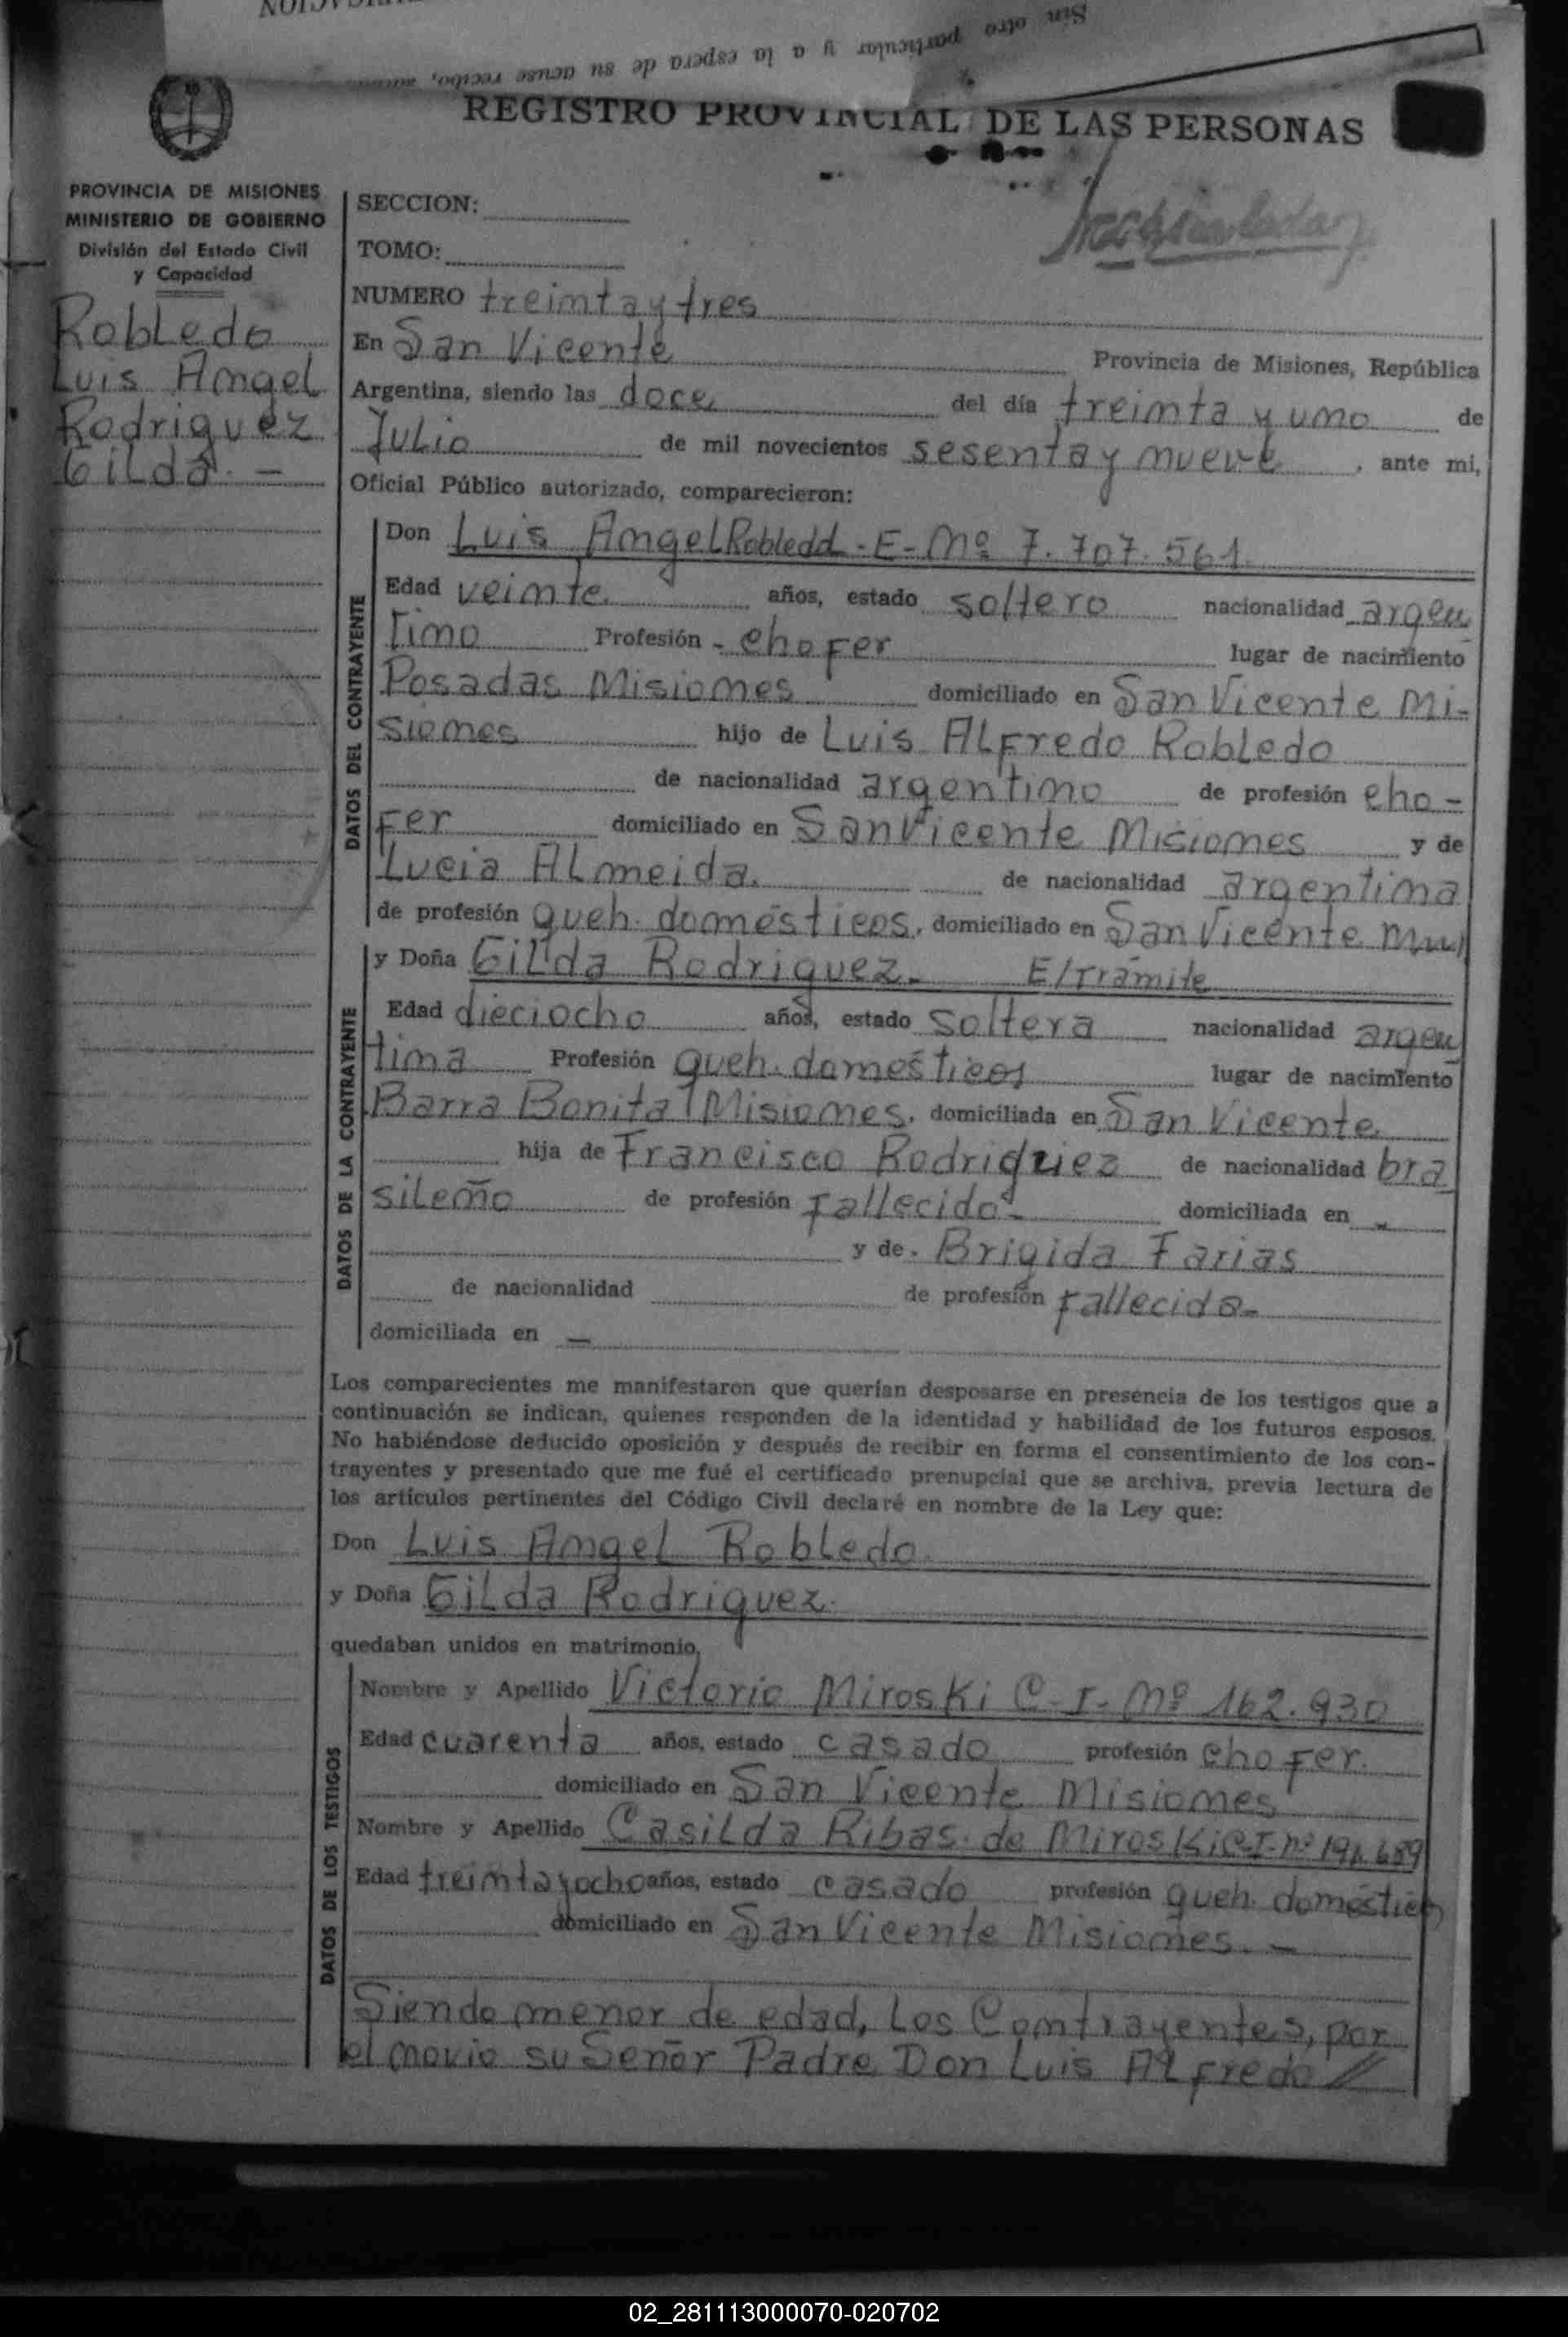 Sin otro particular y a la espera de su acuse recibo,
REGISTRO PROVINCIAL DE LAS PERSONAS
PROVINCIA DE MISIONES
MINISTERIO DE GOBIERNO
División del Estado Civil
y Capacidad
Robledo
Luis Angel
Rodriguez
Gilda. -
SECCION:
TOMO:
NUMERO treinta y tres
En San Vicente Provincia de Misiones, República
Argentina, siendo las doce del día treinta y uno de
Julio de mil novecientos sesenta y nueve, ante mi,
Oficial Público autorizado, comparecieron:
DATOS DEL CONTRAYENTE
Don Luis Angel Robledo - E - Nº 7.707.561
Edad veinte años, estado soltero nacionalidad argen
tino Profesión - chofer lugar de nacimiento
Posadas Misiones domiciliado en San Vicente Mi-
siones hijo de Luis Alfredo Robledo
de nacionalidad argentino de profesión cho-
fer domiciliado en San Vicente Misiones y de
Lucia Almeida. de nacionalidad argentina
de profesión queh. domésticos, domiciliado en San Vicente
DATOS DE LA CONTRAYENTE
y Doña Gilda Rodriguez. E/Trámite
Edad dieciocho años, estado soltera nacionalidad argen
tina Profesión queh. domésticos lugar de nacimiento
Barra Bonita Misiones, domiciliada en San Vicente
hija de Francisco Rodriguez de nacionalidad bra
sileño de profesión fallecido - domiciliada en -
y de. Brigida Farias
de nacionalidad de profesión fallecida -
domiciliada en -
Los comparecientes me manifestaron que querían desposarse en presencia de los testigos que a
continuación se indican, quienes responden de la identidad y habilidad de los futuros esposos.
No habiéndose deducido oposición y después de recibir en forma el consentimiento de los con-
trayentes y presentado que me fué el certificado prenupcial que se archiva, previa lectura de
los artículos pertinentes del Código Civil declaré en nombre de la Ley que:
Don Luis Angel Robledo
y Doña Gilda Rodriguez.
quedaban unidos en matrimonio,
DATOS DE LOS TESTIGOS
Nombre y Apellido Victorio Miroski C-I-Nº 162.930
Edad cuarenta años, estado casado profesión chofer.
domiciliado en San Vicente Misiones
Nombre y Apellido Casilda Ribas de Miroski C-I-Nº
Edad treinta y ocho años, estado casado profesión queh. domésticos
domiciliado en San Vicente Misiones. -
Siendo menor de edad, Los Contrayentes, por
el novio su Señor Padre Don Luis Alfredo //
02_281113000070-020702